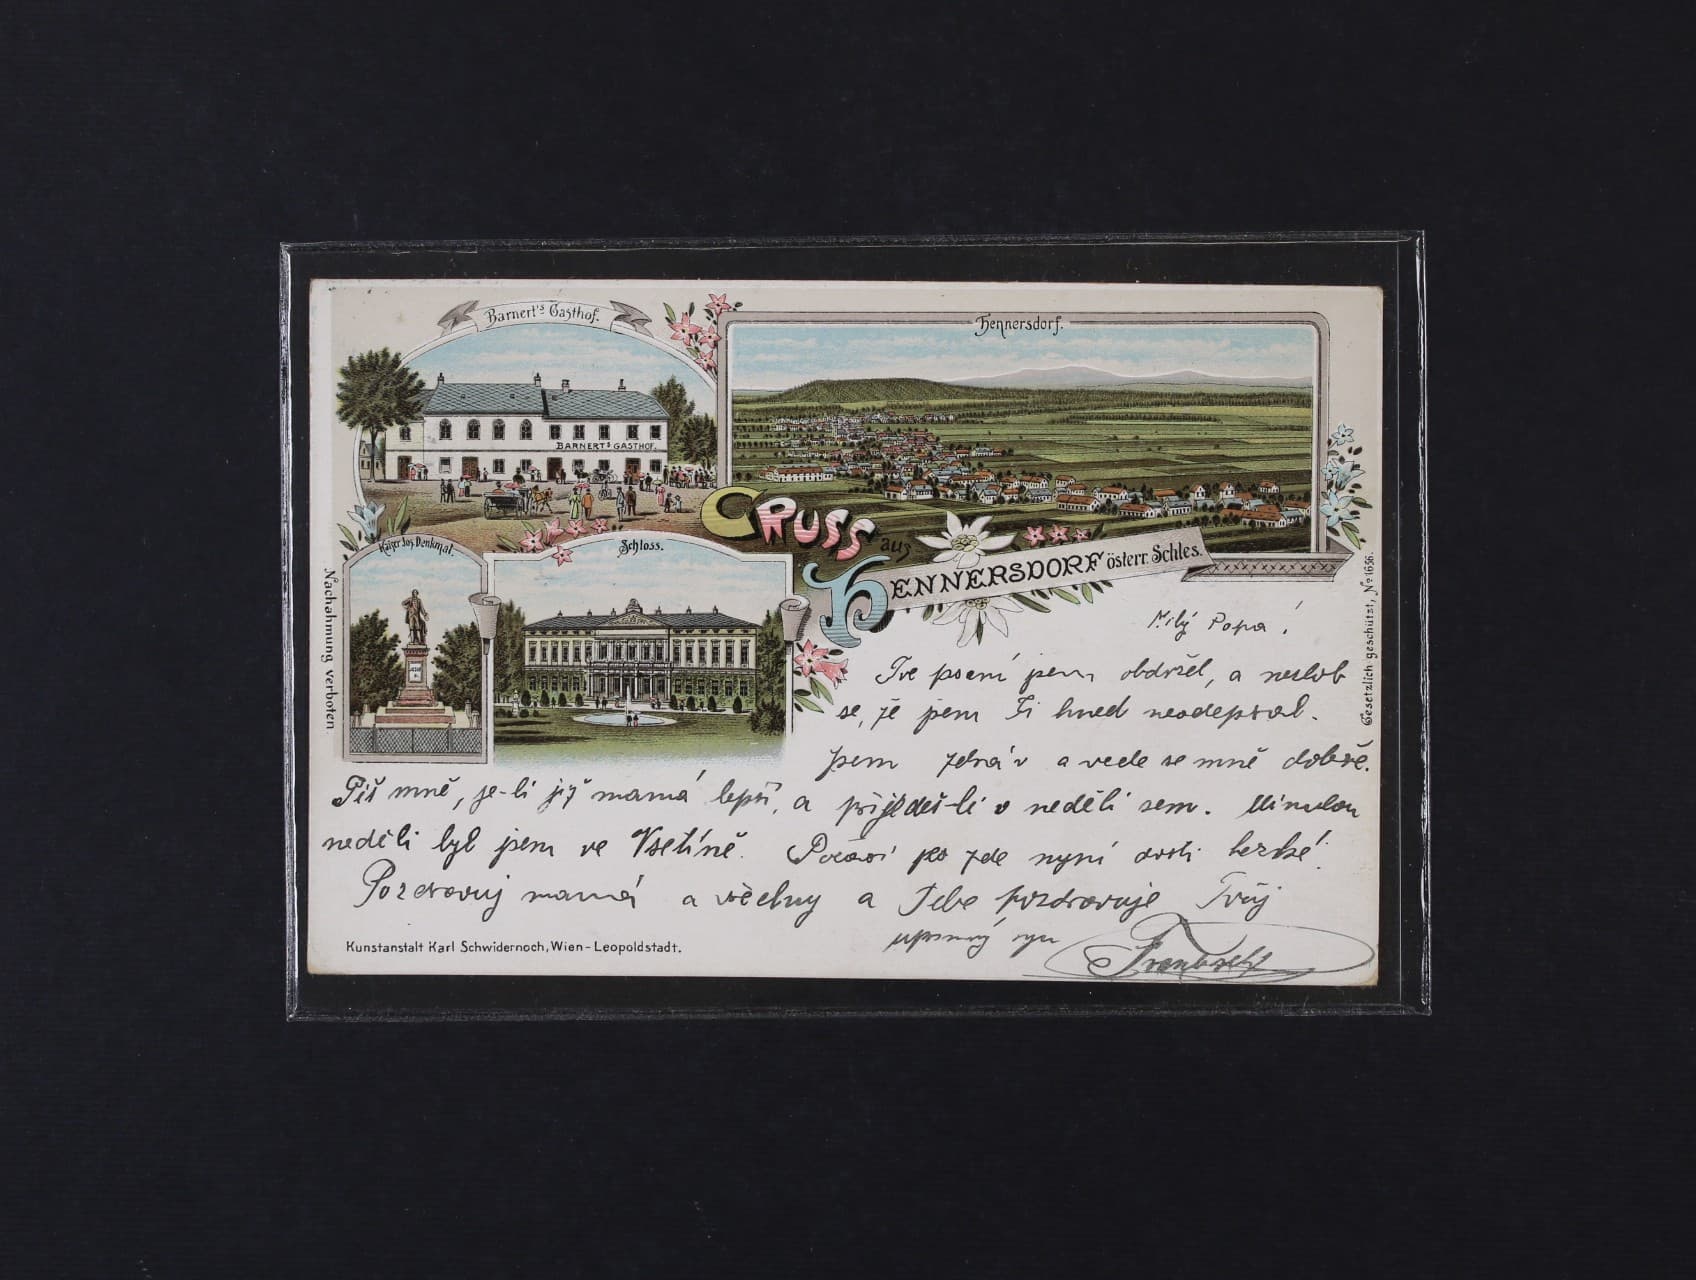 Barnert's Gasthof.
Hennersdorf.
BARNERT'S GASTHOF.
GRUSS aus
HENNERSDORF österr. Schles.
Kaiser Jos. Denkmal.
Schloss.
Nachahmung verboten.
Gesetzlich geschützt, No 1656.
Milý Papa!
Tvé psaní jsem obdržel, a nezlob
se, že jsem Ti hned neodepsal.
jsem zdráv a vede se mně dobře.
Piš mně, je-li již mamá lepší, a přijedeš-li v neděli sem. Minulou
neděli byl jsem ve Vsetíně. Počasí je zde nyní dosti hezké!
Pozdravuj mamá a všechny a Tebe pozdravuje Tvůj
upřímný syn
Kunstanstalt Karl Schwidernoch, Wien-Leopoldstadt.